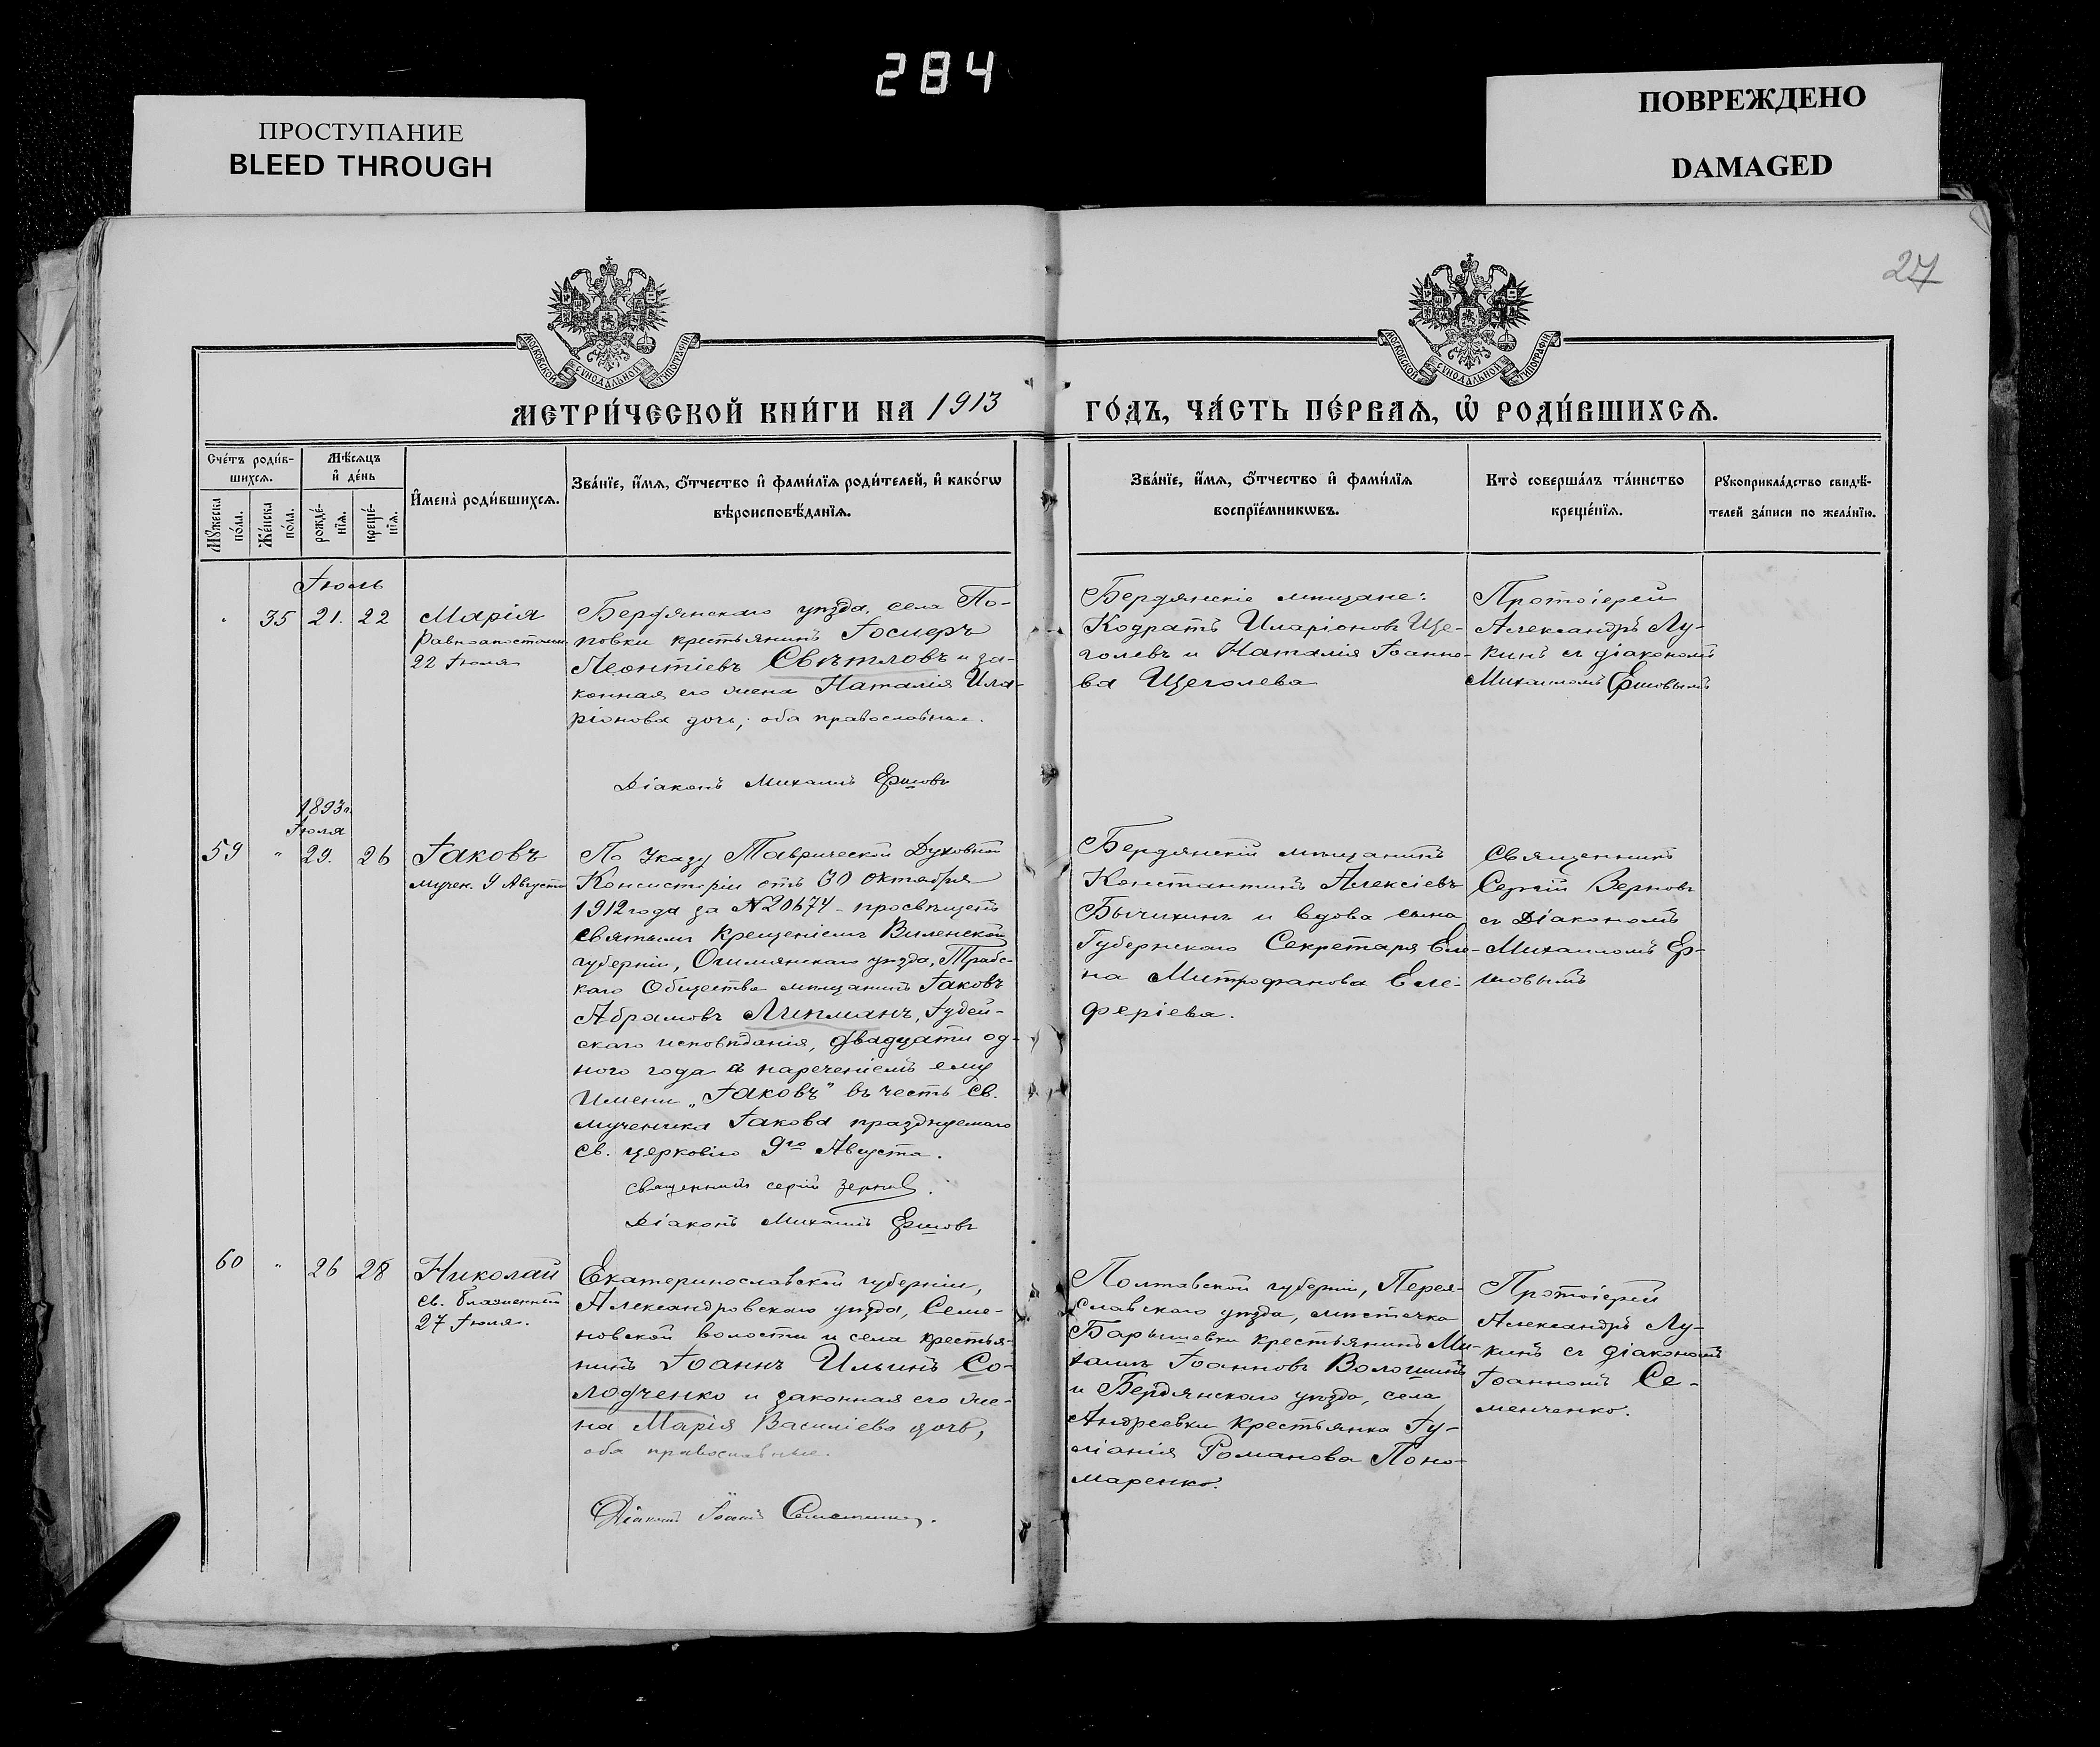 284
ПРОСТУПАНИЕ
BLEED THROUGH
ПОВРЕЖДЕНО
DAMAGED
27
МОСКОВСКОЙ СѴНОДАЛЬНОЙ ТИПОГРАФІИ
МОСКОВСКОЙ СѴНОДАЛЬНОЙ ТИПОГРАФІИ
МЕТРИ́ЧЕСКОЙ КНИ́ГИ НА 1913 ГО́ДЪ, ЧА́СТЬ ПЕ́РВАѦ, Ѡ҆ РОДИ́ВШИХСѦ.
Сче́тъ роди́в-
шихсѧ.
Мꙋ́жеска
по́ла.
Же́нска
по́ла.
Мѣ́сѧцъ
и҆ де́нь
рожде́-
нїѧ.
креще́-
нїѧ.
И҆мена̀ роди́вшихсѧ.
Зва́нїе, и҆́мѧ, ѻ҆́тчество и҆ фами́лїѧ роди́телей, и҆ како́гѡ
вѣроисповѣ́данїѧ.
Зва́нїе, и҆́мѧ, ѻ҆́тчество и҆ фами́лїѧ
воспрїе́мникѡвъ.
Кто̀ соверша́лъ та́инство
креще́нїѧ.
Рꙋкоприкла́дство свидѣ́-
телей за́писи по жела́нїю.
Іюль
35 21. 22
Марія
равноапостольн.
22 Іюля
Бердянскаго уѣзда, села По-
повки крестьянинъ Госмеръ
Леонтіевъ Свѣтловъ и за-
конная его жена Наталія Ила-
ріонова дочь, оба православные.
Діаконъ Михаилъ Ершовъ
Бердянскіе мѣщане:
Кодратъ Иларіоновъ Ще-
голевъ и Наталія Іоанно-
ва Щеголева
Протоіерей
Александръ Лу-
кинъ съ діакономъ
Михаиломъ Ершовымъ
1893 г.
Іюля
59 " 29. 26
Іаковъ
мучен. 9 Августа
По Указу Таврической Духовной
Консисторіи отъ 30 Октября
1912 года за № 20674 - просвѣщенъ
святымъ Крещеніемъ Виленской
губерніи, Ошмянскаго уѣзда, Трабс-
каго Общества мѣщанинъ Іаковъ
Абрамовъ Липманъ, Іудей-
скаго исповѣданія, двадцати од-
ного года съ нареченіемъ ему
имени „Іаковъ" въ честь Св.
мученика Іакова празднуемаго
св. церковію 9го Августа.
Священникъ Сергій Зерновъ.
Діаконъ Михаилъ Ершовъ
Бердянскій мѣщанинъ
Константинъ Алексіевъ
Бычихинъ и вдова сына
Губернскаго Секретаря Еле-
на Митрофанова Еле-
феріева.
Священникъ
Сергій Зерновъ
съ Діакономъ
Михаиломъ Ер-
шовымъ
60 " 26 28
Николай
св. блаженный
27 Іюля.
Екатеринославской губерніи,
Александровскаго уѣзда, Семе-
новской волости и села крестья-
нинъ Іоаннъ Ильинъ Со-
лодченко и законная его же-
на Марія Василіева дочь,
оба православные.
Діаконъ Іоаннъ Семенченко.
Полтавской губерніи, Перея-
славскаго уѣзда, мѣстечка
Барышевки крестьянинъ Ми-
хаилъ Іоанновъ Волошинъ
и Бердянскаго уѣзда, села
Андреевки крестьянка Іу-
ліанія Романова Поно-
маренко.
Протоіерей
Александръ Лу-
кинъ съ діакономъ
Іоанномъ Се-
менченко.